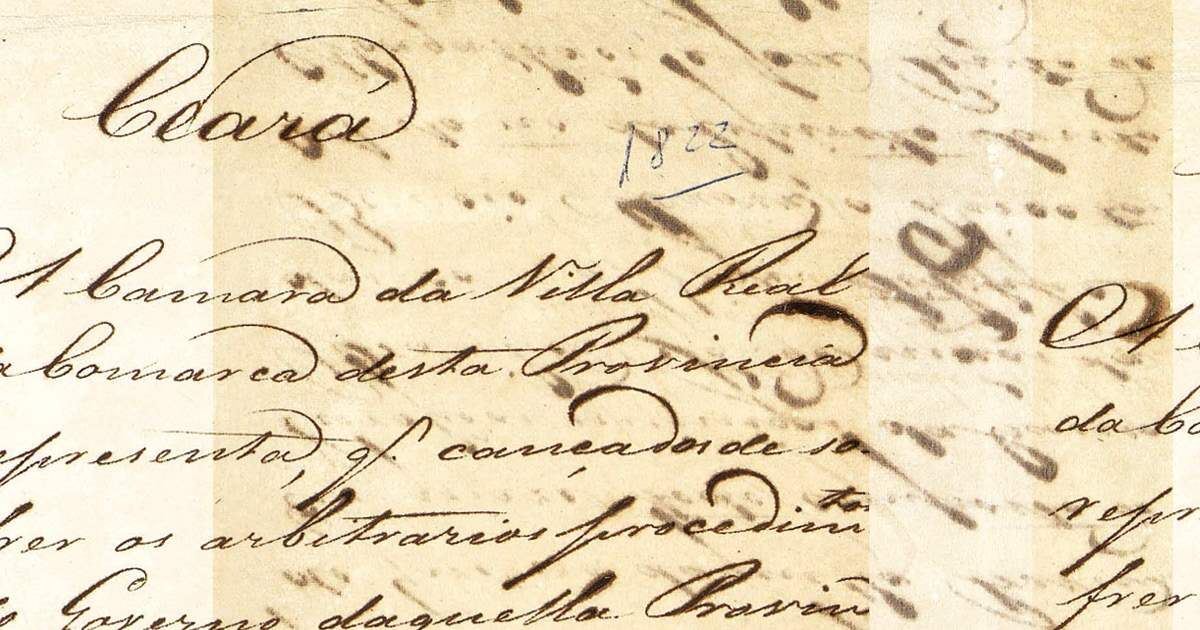 Ceará
1822
A Camara da Villa Real
Comarca desta Provincia
epresenta, q. cançados de so-
frer os arbitrarios procedim.tos
Governo daquella Provin
A
da Co
repr
frer